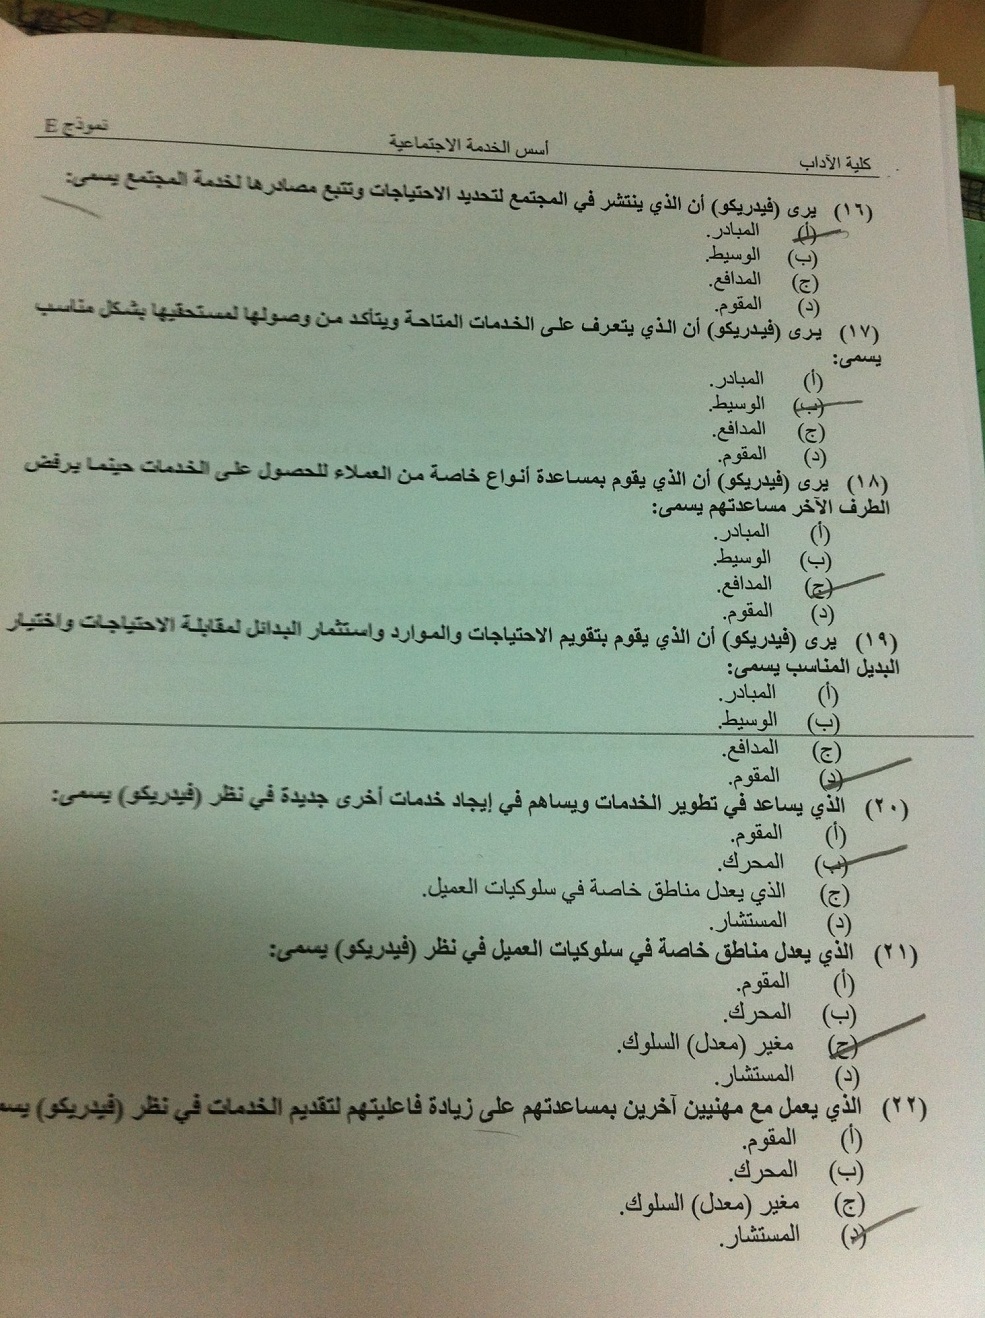 كلية الآداب
أسس الخدمة الاجتماعية
نموذج E
(١٦) يرى (فيدريكو) أن الذي ينتشر في المجتمع لتحديد الاحتياجات وتتبع مصادرها لخدمة المجتمع يسمى:
(أ) المبادر.
(ب) الوسيط.
(ج) المدافع.
(د) المقوم.
(١٧) يرى (فيدريكو) أن الذي يتعرف على الخدمات المتاحة ويتأكد من وصولها لمستحقيها بشكل مناسب
يسمى:
(أ) المبادر.
(ب) الوسيط.
(ج) المدافع.
(د) المقوم.
(١٨) يرى (فيدريكو) أن الذي يقوم بمساعدة أنواع خاصة من العملاء للحصول على الخدمات حينما يرفض
الطرف الآخر مساعدتهم يسمى:
(أ) المبادر.
(ب) الوسيط.
(ج) المدافع.
(د) المقوم.
(١٩) يرى (فيدريكو) أن الذي يقوم بتقويم الاحتياجات والموارد واستثمار البدائل لمقابلة الاحتياجات واختيار
البديل المناسب يسمى:
(أ) المبادر.
(ب) الوسيط.
(ج) المدافع.
(د) المقوم.
(٢٠) الذي يساعد في تطوير الخدمات ويساهم في إيجاد خدمات أخرى جديدة في نظر (فيدريكو) يسمى:
(أ) المقوم.
(ب) المحرك.
(ج) الذي يعدل مناطق خاصة في سلوكيات العميل.
(د) المستشار.
(٢١) الذي يعدل مناطق خاصة في سلوكيات العميل في نظر (فيدريكو) يسمى:
(أ) المقوم.
(ب) المحرك.
(ج) مغير (معدل) السلوك.
(د) المستشار.
(٢٢) الذي يعمل مع مهنيين آخرين بمساعدتهم على زيادة فاعليتهم لتقديم الخدمات في نظر (فيدريكو) يسم
(أ) المقوم.
(ب) المحرك.
(ج) مغير (معدل) السلوك.
(د) المستشار.